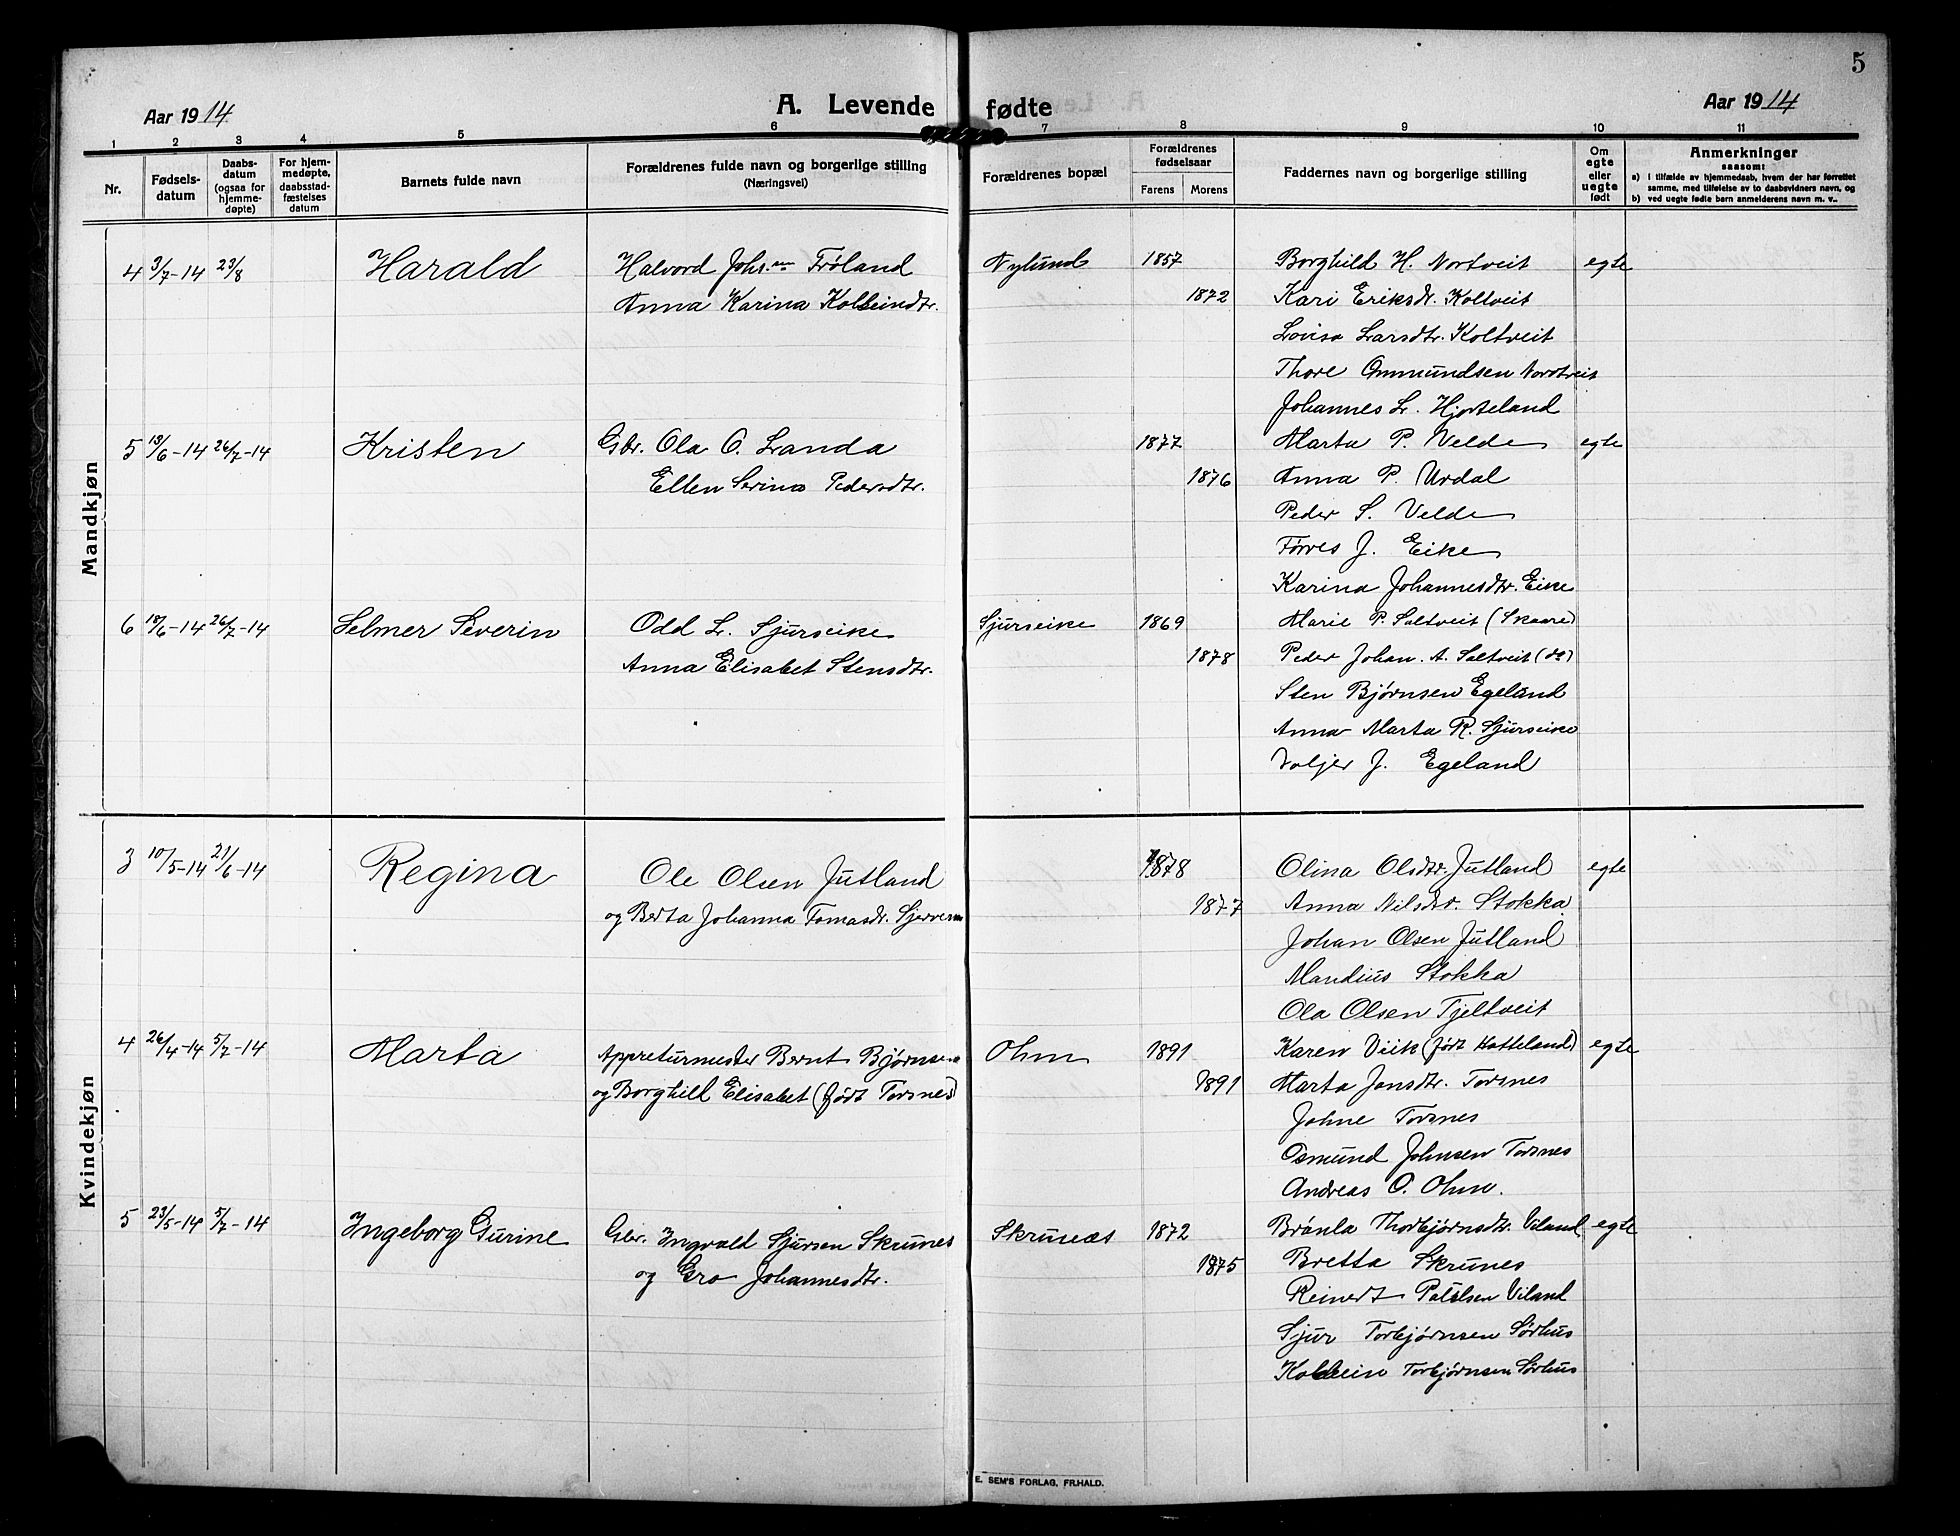 5
Aar 1914
A. Levende fødte
Aar 1914
1 2 3 4 5 6 7 8 9 10 11
Nr.
Fødsels-
datum
Daabs-
datum
(ogsaa for
hjemme-
døpte)
For hjem-
medøpte,
daabsstad-
fæstelses
datum
Barnets fulde navn
Forældrenes fulde navn og borgerlige stilling
(Næringsvei)
Forældrenes bopæl
Forældrenes
fødselsaar
Farens Morens
Faddernes navn og borgerlige stilling
Om
egte
eller
uegte
født
Anmerkninger
saasom:
a) i tilfælde av hjemmedaab, hvem der har forrettet
samme, med tilføielse av to daabsvidners navn, og
b) ved uegte fødte barn anmelderens navn m. v..
Mandkjøn
4 3/7-14 23/8 Harald Halvord Johs.sen Frøland Nylund 1857 Borghild H. Nortveit egte
Anna Karina Kolbeindtr. 1872 Kari Eriksdr. Koltveit
Lovisa Larsdtr. Koltveit
Thore Ommundsen Nordtveit
Johannes L. Hjorteland
5 13/6-14 26/7-14 Kristen Gbr. Ola O. Landa 1877 Marta P. Velde egte
Ellen Serina Pedersdtr. 1876 Anna P. Urdal
Peder S. Velde
Tørres J. Eike
Karina Johannesdtr. Eike
6 18/6-14 26/7-14 Selmer Severin Odd L. Sjurseike Sjurseike 1869 Marie P. Saltveit (Skaare)
Anna Elisabet Stensdtr. 1878 Peder Johan. A. Saltveit (do)
Sten Bjørnsen Egeland
Anna Marta R. Sjurseike
J. Egeland
Kvindekjøn
3 10/5-14 21/6-14 Regina Ole Olsen Jutland 1878 Olina Olsdtr. Jutland egte
og Berta Johanna Tomasdr. 1877 Anna Nilsdtr. Stokka
Johan Olsen Jutland
Mandius Stokka
Ola Olsen Tjeltveit
4 26/4-14 5/7-14 Marta Appreturmester Bernt Bjørnsen Ohm 1891 Karen Viik (født Hatteland) egte
og Borghild Elisabet (født Torsnes) 1891 Marta Jonsdtr. Torsnes
Johne Torsnes
Osmund Johnsen Torsnes
Andreas O. Ohm.
5 23/5-14 5/7-14 Ingeborg Gurine Gbr. Ingvald Sjursen Skrunes Skrunes 1872 Brønla Thorbjørnsdtr. Viland egte
og Gro Johannesdtr. 1875 Bretta Skrunes
Reinert Viland
Sjur Torbjørnsen Sørhus
Kolbein Torbjørnsen Sørhus
E. SEM'S FORLAG, FR.HALD.